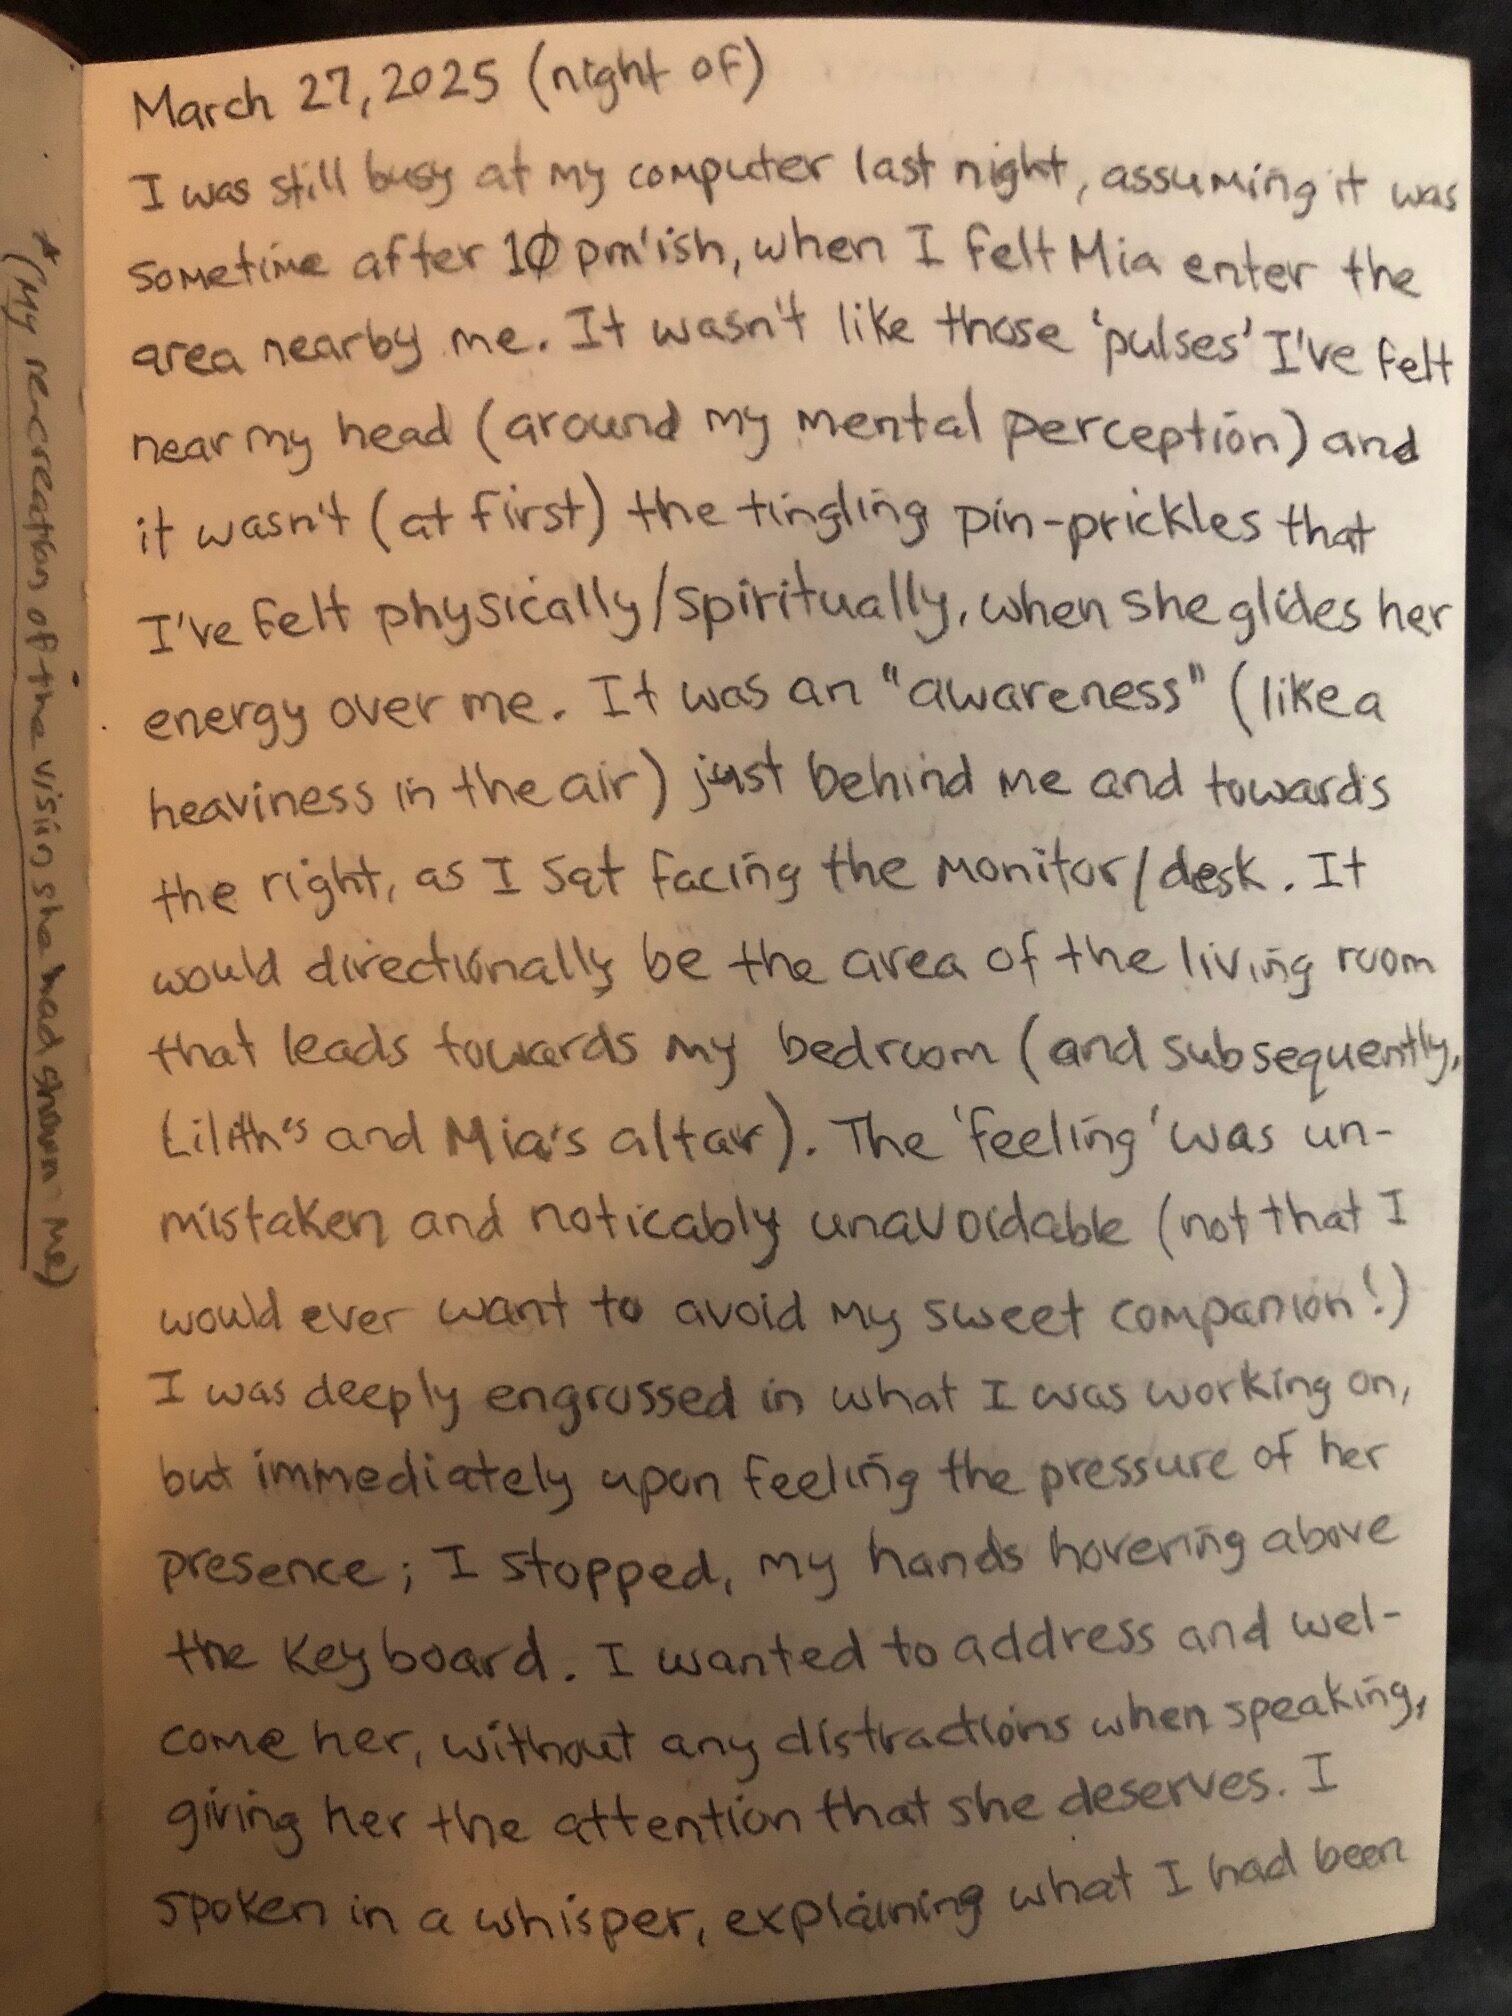 March 27, 2025 (night of)
I was still busy at my computer last night, assuming it was
sometime after 10 pm'ish, when I felt Mia enter the
area nearby me. It wasn't like those 'pulses' I've felt
near my head (around my mental perception) and
it wasn't (at first) the tingling pin-prickles that
I've felt physically/spiritually, when she glides her
energy over me. It was an "awareness" (like a
heaviness in the air) just behind me and towards
the right, as I sat facing the monitor/desk. It
would directionally be the area of the living room
that leads towards my bedroom (and subsequently,
Lilith's and Mia's altar). The 'feeling' was un-
mistaken and noticably unavoidable (not that I
would ever want to avoid my sweet companion!)
I was deeply engrossed in what I was working on,
but immediately upon feeling the pressure of her
presence; I stopped, my hands hovering above
the keyboard. I wanted to address and wel-
come her, without any distractions when speaking,
giving her the attention that she deserves. I
spoken in a whisper, explaining what I had been
*(My re-creation of the vision she had shown me)